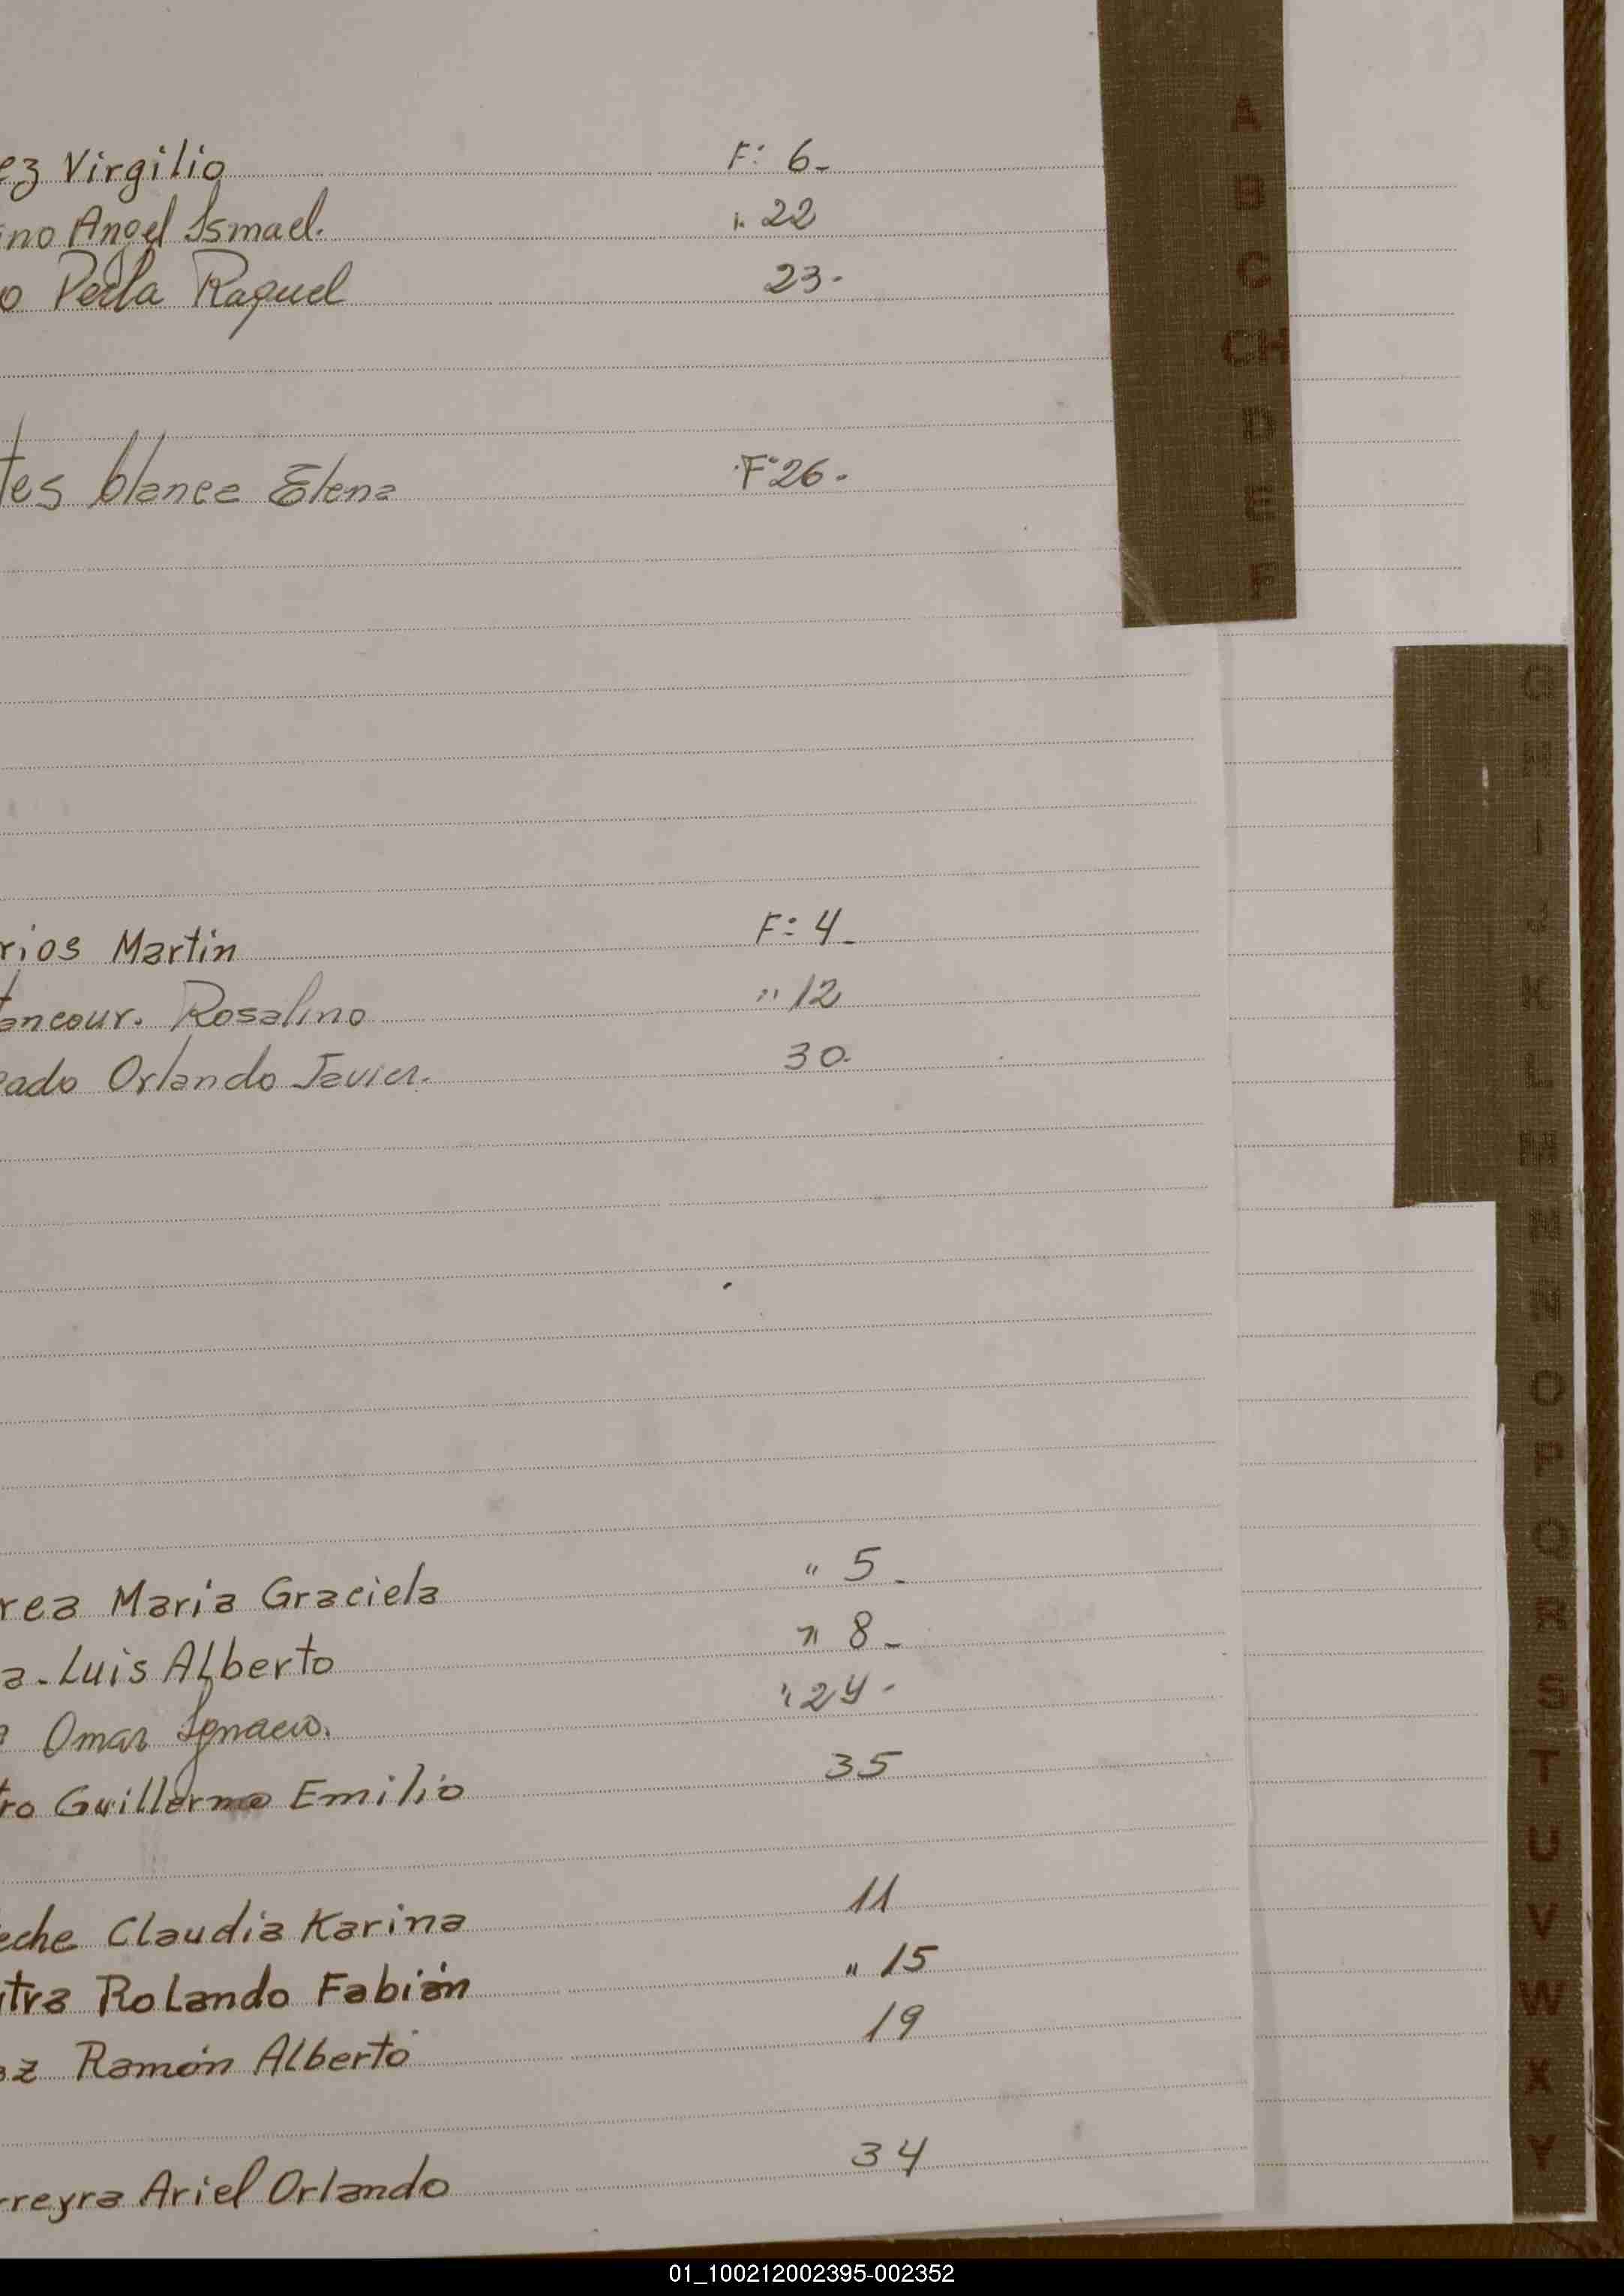 ez Virgilio F: 6-
ino Angel Ismael. " 22
o Perla Raquel 23-
tes blanca Elena F° 26-
rios Martin F: 4-
tancour. Rosalino " 12
eado Orlando Javier. 30-
rea Maria Graciela " 5-
a- Luis Alberto " 8-
a Omar Ignacio. " 24-
tro Guillermo Emilio 35
eche Claudia Karina 11
itra Rolando Fabián " 15
ez Ramón Alberto 19
rreyra Ariel Orlando 34
A
B
C
CH
D
E
F
G
H
I
J
K
L
Ll
M
N
O
P
Q
R
S
T
U
V
W
X
Y
01_100212002395-002352